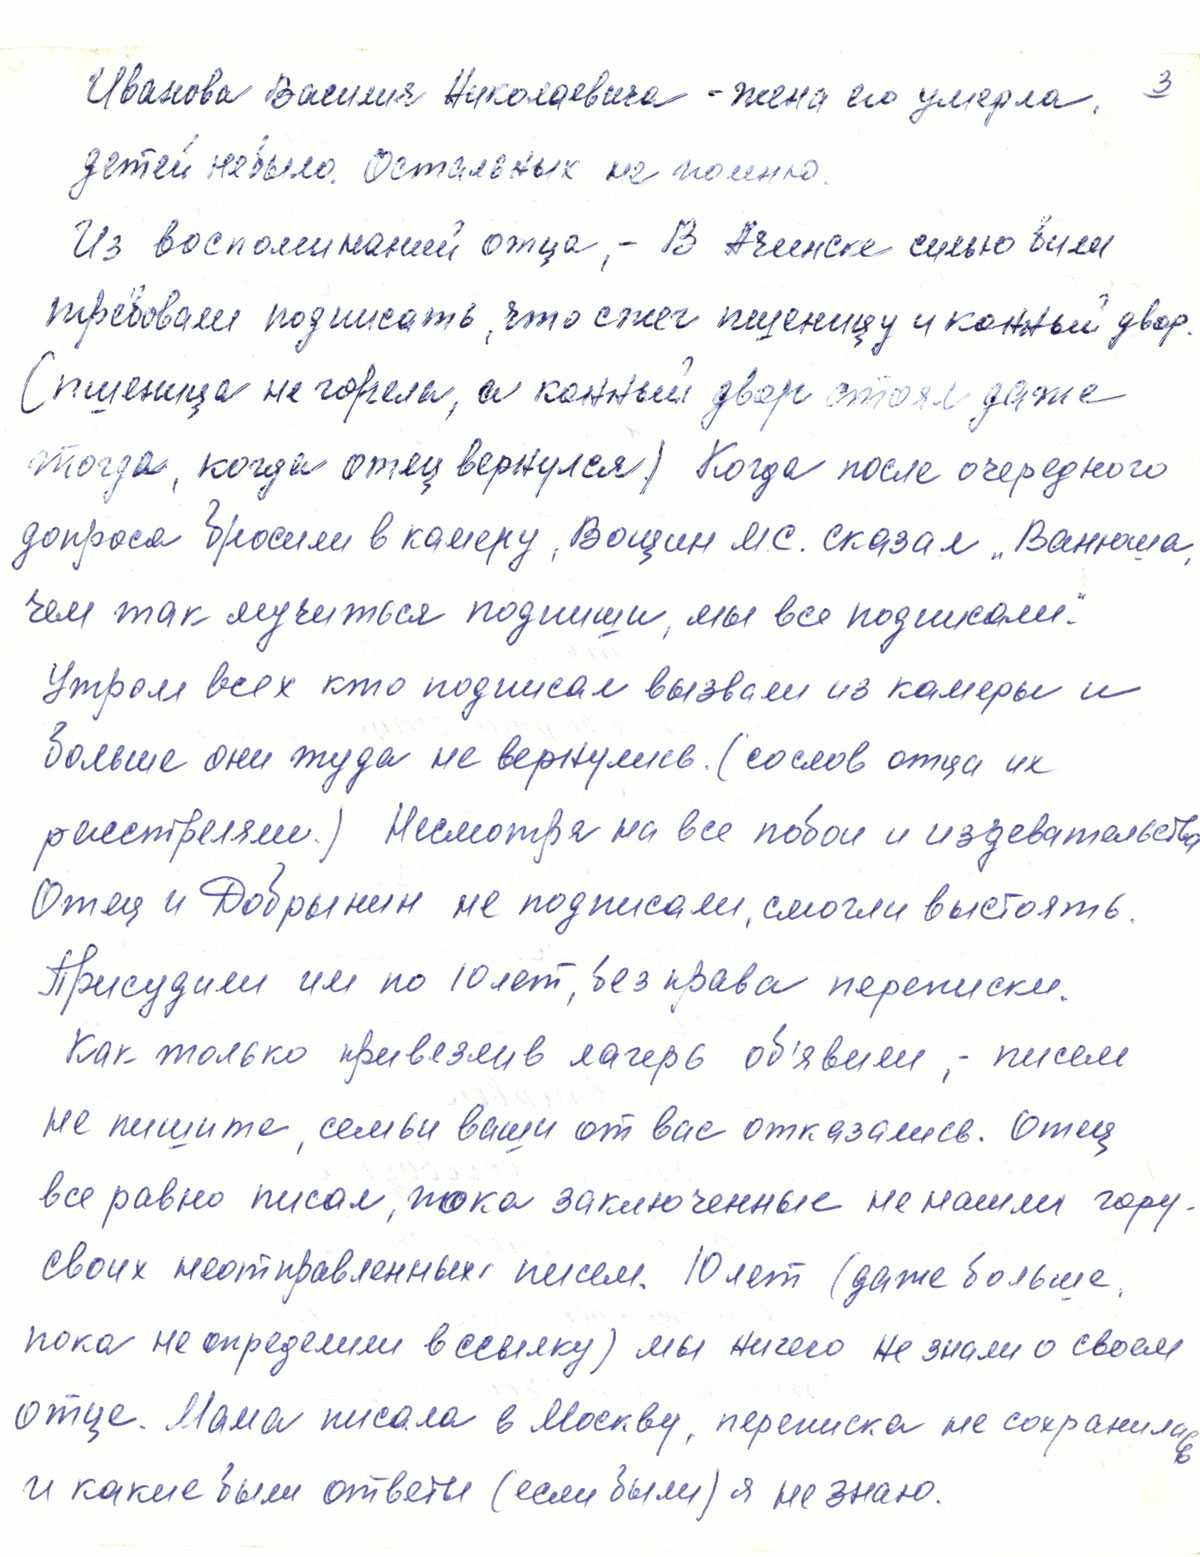 3
Иванова Василия Николаевича - жена его умерла,
детей небыло. Остальных не помню.
Из воспоминаний отца, - В Ачинске сильно били
требовали подписать, что сжег пшеницу и конный двор.
(пшеница не горела, а конный двор стоял даже
тогда, когда отец вернулся) Когда после очередного
допроса бросили в камеру, Вощин М.С. сказал „Ванюша,
чем так мучиться подпиши, мы все подписали."
Утром всех кто подписал вызвали из камеры и
больше они туда не вернулись. (сослов отца их
расстреляли.) Несмотря на все побои и издевательства
Отец и Добрынин не подписали, смогли выстоять.
Присудили им по 10 лет, без права переписки.
Как только привезли в лагерь об'явили, - писем
не пишите, семьи ваши от вас отказались. Отец
все равно писал, пока заключенные не нашли гору
своих неотправленных писем. 10 лет (даже больше,
пока не определили в ссылку) мы ничего не знали о своем
отце. Мама писала в Москву, переписка не сохранилась
и какие были ответы (если были) я не знаю.